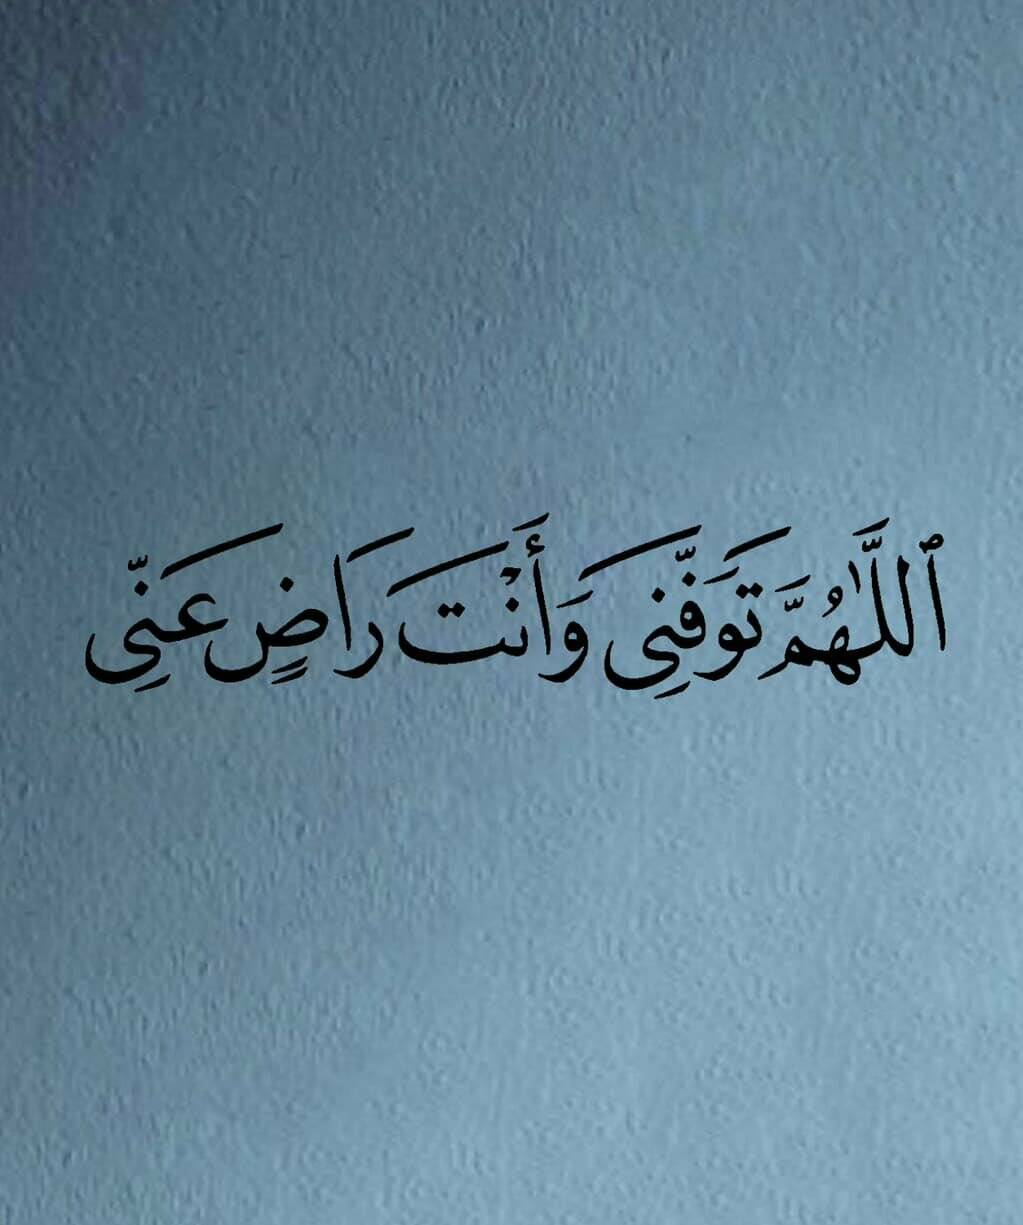 ٱللَّٰهُمَّ تَوَفَّنِى وَأَنْتَ رَاضٍ عَنِّى